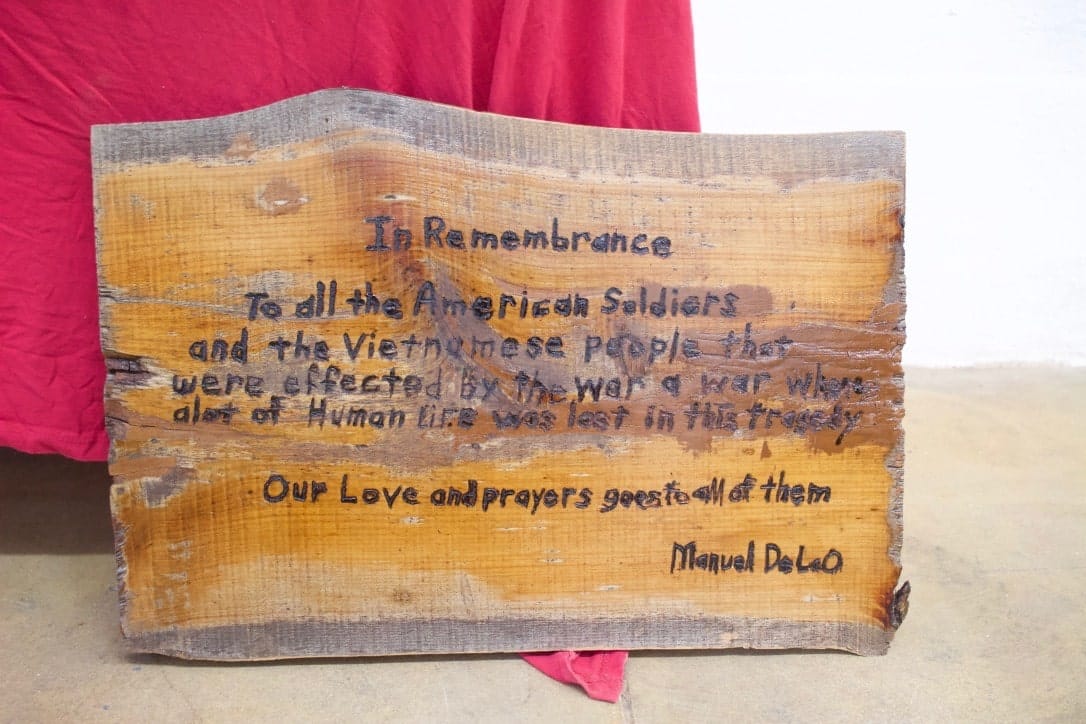 In Remembrance
To all the American Soldiers
and the Vietnamese people that
were effected by the war a war where
alot of Human Life was lost in this tragedy
Our Love and prayers goes to all of them
Manuel DeLaO